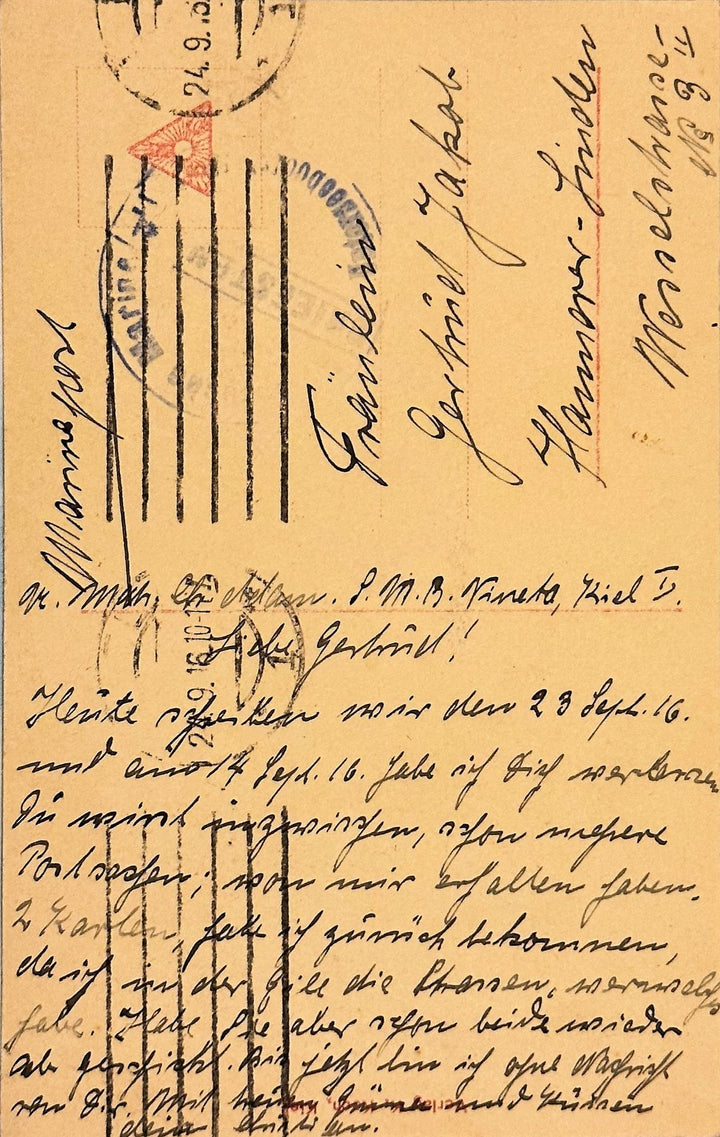 24.9.16
Marinepost
Fräulein
Gertrud Jakob
Hannover-Linden
Wesselstrasse
No 3 II
Adam. S.M.B. Nineta, Kiel I.
24.9.16.10-11
Liebe Gertrud!
Heute schreiben wir den 23 Sept. 16.
und am 14 Sept. 16. habe ich Dich verlassen
Du wirst inzwischen, schon mehere
Postsachen, von mir erhalten haben.
2 Karten, habe ich zurück bekommen,
da ich in der Eile die Strassen, verwechselt
habe. Habe Sie aber schon beide wieder
ab geschickt. Bis jetzt bin ich ohne Nachricht
von Dir. Mit Grüssen und Küssen
dein